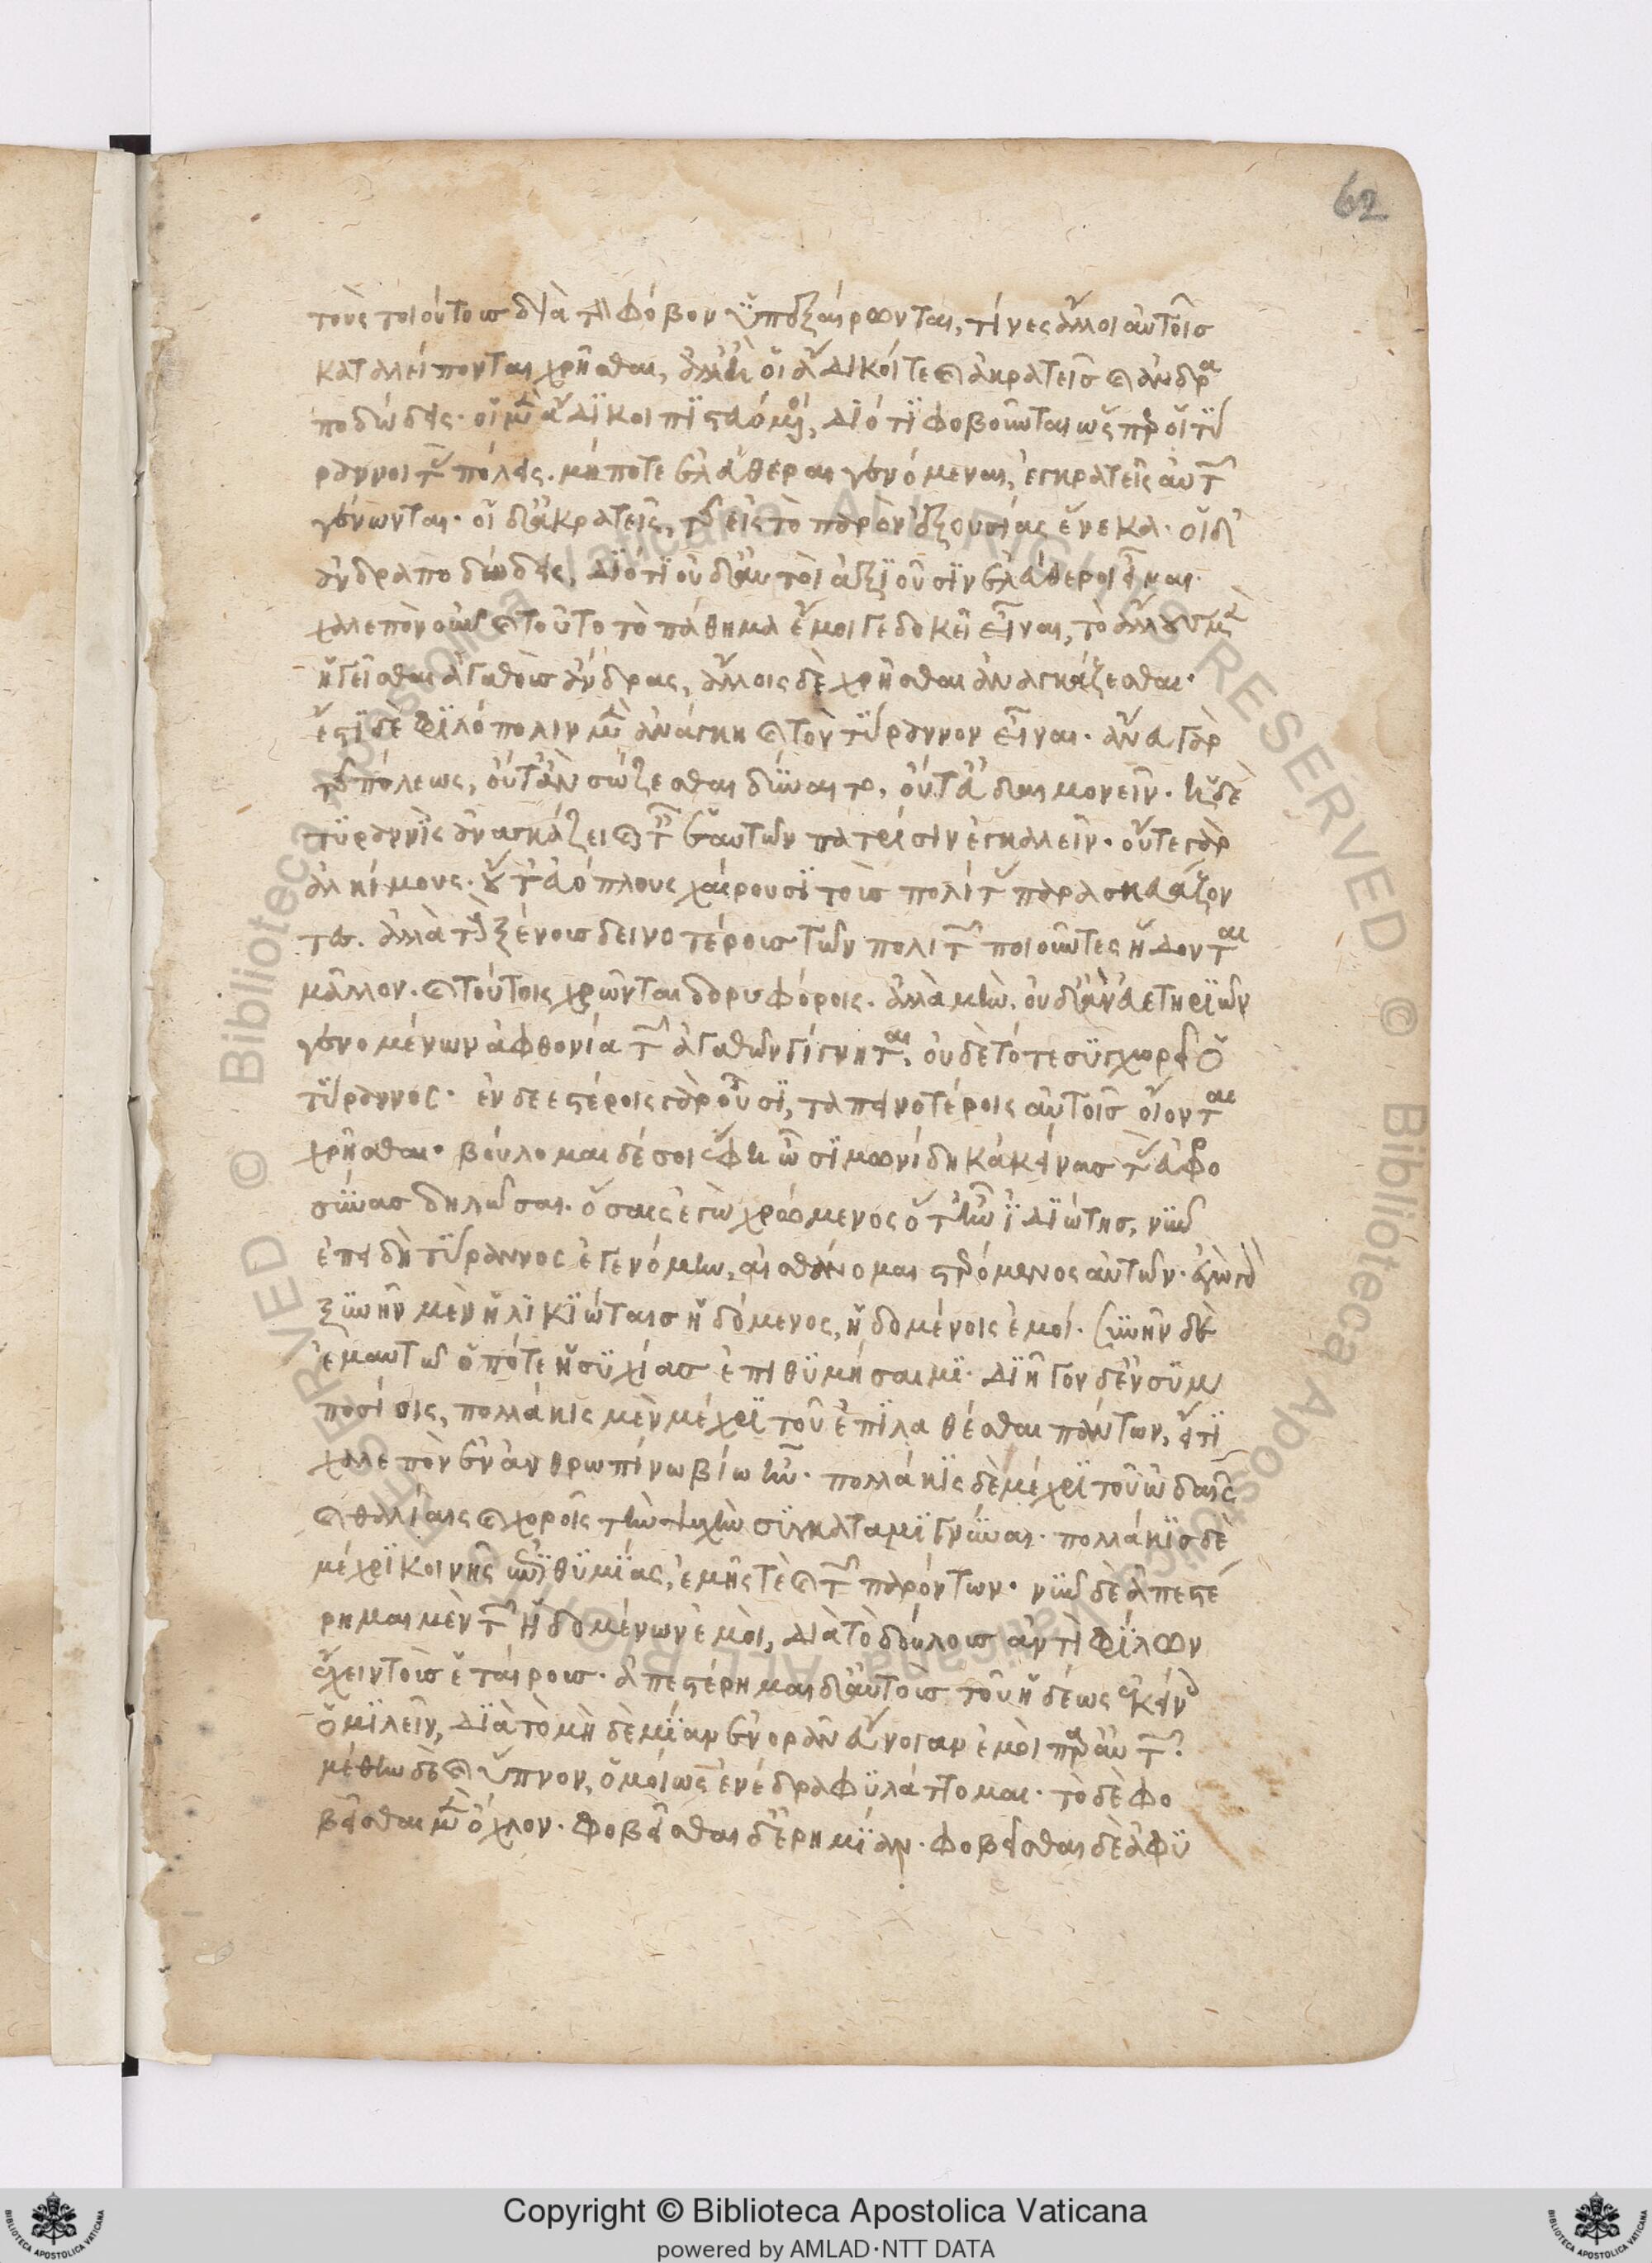 62
τοὺς τοιούτους διὰ τὸν φόβον ὑπεξαίρωνται, τίνες ἄλλοι αὐτοῖς
καταλείπονται χρῆσθαι, ἀλλ' ἢ οἱ ἄδικοί τε καὶ ἀκρατεῖς καὶ ἀνδρα
ποδώδεις. οἱ μὲν ἄδικοι πιστευόμενοι, διότι φοβοῦνται ὥσπερ οἱ τύ
ραννοι τὰς πόλεις. μήποτε ἐλεύθεραι γενόμεναι, ἐγκρατεῖς αὐτῶν
γένωνται. οἱ δ' ἀκρατεῖς, τῆς εἰς τὸ παρὸν ἐξουσίας ἕνεκα. οἱ δ'
ἀνδραποδώδεις, διότι οὐδ' αὐτοὶ ἀξιοῦσιν ἐλεύθεροι εἶναι.
χαλεπὸν οὖν καὶ τοῦτο τὸ πάθημα ἔμοιγε δοκεῖ εἶναι, τὸ ἄλλους μὲν
ἡγεῖσθαι ἀγαθοὺς ἄνδρας, ἄλλοις δὲ χρῆσθαι ἀναγκάζεσθαι.
ἔτι δὲ φιλόπολιν μὲν ἀνάγκη καὶ τὸν τύραννον εἶναι. ἄνευ γὰρ
τῆς πόλεως, οὔτ' ἂν σώζεσθαι δύναιτο, οὔτ' εὐδαιμονεῖν. ἡ δὲ
τυραννὶς ἀναγκάζει καὶ ταῖς ἑαυτῶν πατρίσιν ἐγκαλεῖν. οὔτε γὰρ
ἀλκίμους. οὔτ' εὐόπλους χαίρουσι τοὺς πολίτας παρασκευάζον
τες. ἀλλὰ τοὺς ξένους δεινοτέρους τῶν πολιτῶν ποιοῦντες ἥδονται
μᾶλλον. καὶ τούτοις χρῶνται δορυφόροις. ἀλλὰ μὴν. οὐδ' ἂν εὐετηριῶν
γενομένων ἀφθονία τῶν ἀγαθῶν γίγνηται, οὐδὲ τότε συγχωρεῖ ὁ
τύραννος. ἐνδεεστέροις γὰρ οὖσι, ταπεινοτέροις αὐτοῖς οἴονται
χρῆσθαι. βούλομαι δέ σοι ἔφη ὦ σιμωνίδη κἀκείνας τὰς εὐφρο
σύνας δηλῶσαι. ὅσαις ἐγὼ χρώμενος ὅτ' ἦν ἰδιώτης, νῦν
ἐπειδὴ τύραννος ἐγενόμην, αἰσθάνομαι στερόμενος αὐτῶν. ἐγὼ γὰρ
ξυνῆν μὲν ἡλικιώταις ἡδόμενος, ἡδομένοις ἐμοί. συνῆν δὲ
ἐμαυτῶ ὁπότε ἡσυχίας ἐπιθυμήσαιμι. διῆγον δ' ἐν συμ
ποσίοις, πολλάκις μὲν μέχρι τοῦ ἐπιλαθέσθαι πάντων, εἴ τι
χαλεπὸν ἐν ἀνθρωπίνω βίω ἦν. πολλάκις δὲ μέχρι τοῦ ὠδαῖς
καὶ θαλίαις καὶ χοροῖς τὴν ψυχὴν συγκαταμιγνύναι. πολλάκις δὲ
μέχρι κοινῆς ἐπιθυμίας, ἐμῆς τὲ καὶ τῶν παρόντων. νῦν δὲ ἀπεστέ
ρημαι μὲν τῶν ἡδομένων ἐμοὶ, διὰ τὸ δούλους ἀντὶ φίλων
ἔχειν τοὺς ἑταίρους. ἀπεστέρημαι δ' αὐτὸς τοῦ ἡδέως ἐκείνοις
ὁμιλεῖν, διὰ τὸ μὴ δὲ μίαν ἐνορᾶν εὔνοιαν ἐμοὶ παρ' αὐτῶν.
μέθην δὲ καὶ ὕπνον, ὁμοίως ἐνέδρα φυλάττομαι. τὸ δὲ φο
βεῖσθαι μὲν ὄχλον. φοβεῖσθαι δ' ἐρημίαν. φοβεῖσθαι δὲ ἀφυ
Copyright © Biblioteca Apostolica Vaticana
powered by AMLAD·NTT DATA